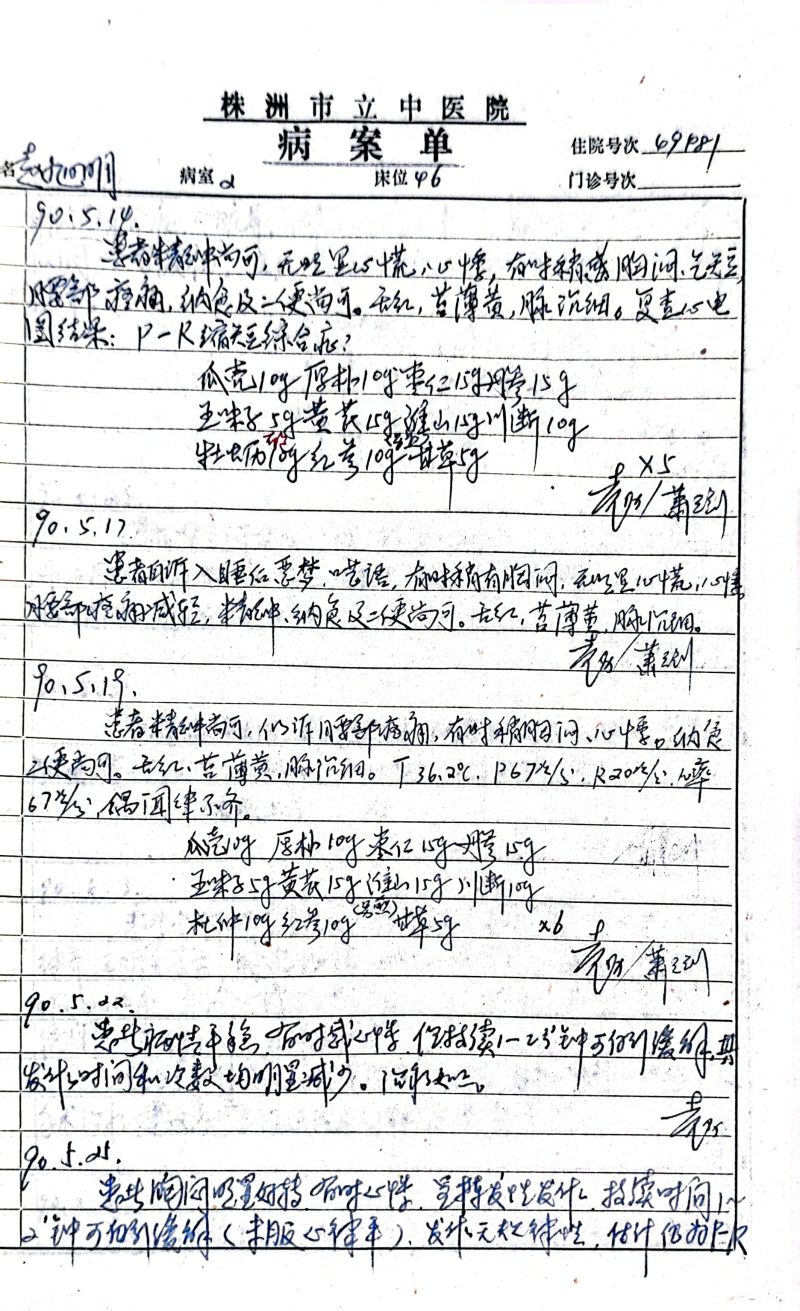 株洲市立中医院
病案单
住院号次
名 明 病室 2 床位 46 门诊号次
90.5.14.
患者精神尚可，无明显心慌、心悸，有时稍感胸闷、气短，
腰部疼痛，纳食及二便尚可。舌红，苔薄黄，脉沉细。复查心电
图结果：P-R缩短综合症？
瓜壳10g 厚朴10g 枣仁15g 丹参15g
五味子5g 黄芪15g 淮山15g 川断10g
牡蛎10g 红参10g 甘草5g
x5
90.5.17
患者自诉入睡后恶梦、呓语，有时稍有胸闷，无明显心慌、心悸，
腰部疼痛减轻，精神、纳食及二便尚可。舌红，苔薄黄，脉沉细。
90.5.19.
患者精神尚可，仍诉腰部疼痛，有时稍胸闷、心悸。纳食
二便尚可。舌红、苔薄黄，脉沉细。T 36.2℃. P67次/分，R20次/分，心率
67次/分，偶闻律不齐。
瓜壳10g 厚朴10g 枣仁15g 丹参15g
五味子5g 黄芪15g 淮山15g 川断10g
杜仲10g 红参10g 甘草5g x6
90.5.22.
患者病情平稳，有时感心悸，但持续1-2分钟可得到缓解，其
发作时间和次数均明显减少。治疗如上。
90.5.25.
患者胸闷明显好转，有时心悸，呈阵发性发作，持续时间1~
2分钟可得到缓解（未服心律平），发作无规律性，估计仍为P-R